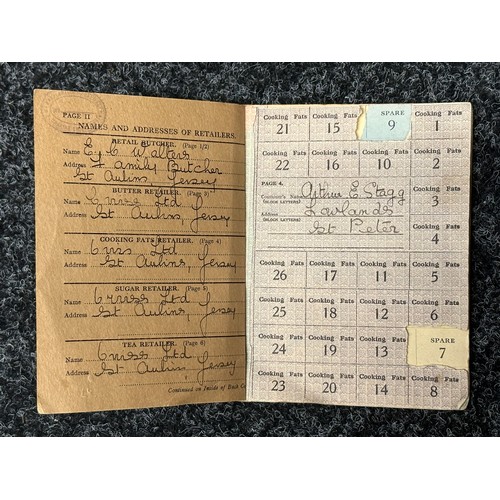 PAGE 11
NAMES AND ADDRESSES OF RETAILERS.
RETAIL BUTCHER. (Page 1/2)
Name E, C Walters
Address Family Butcher
St Aubins, Jersey
BUTTER RETAILER. (Page 3)
Name Ltd
Address St. Aubins, Jersey
COOKING FATS RETAILER. (Page 4)
Name Ltd
Address St. Aubins, Jersey
SUGAR RETAILER. (Page 5)
Name Ltd
Address St. Aubins, Jersey
TEA RETAILER. (Page 6)
Name Ltd
Address St. Aubins, Jersey
Continued on Inside of Back
Cooking Fats Cooking Fats SPARE Cooking Fats
21 15 9 1
Cooking Fats Cooking Fats Cooking Fats Cooking Fats
22 16 10 2
PAGE 4.
Consumer's Name E Stagg
(BLOCK LETTERS)
Address Lowlands
(BLOCK LETTERS)
St Peter
Cooking Fats
3
Cooking Fats
4
Cooking Fats Cooking Fats Cooking Fats Cooking Fats
26 17 11 5
Cooking Fats Cooking Fats Cooking Fats Cooking Fats
25 18 12 6
Cooking Fats Cooking Fats Cooking Fats SPARE
24 19 13 7
Cooking Fats Cooking Fats Cooking Fats Cooking Fats
23 20 14 8